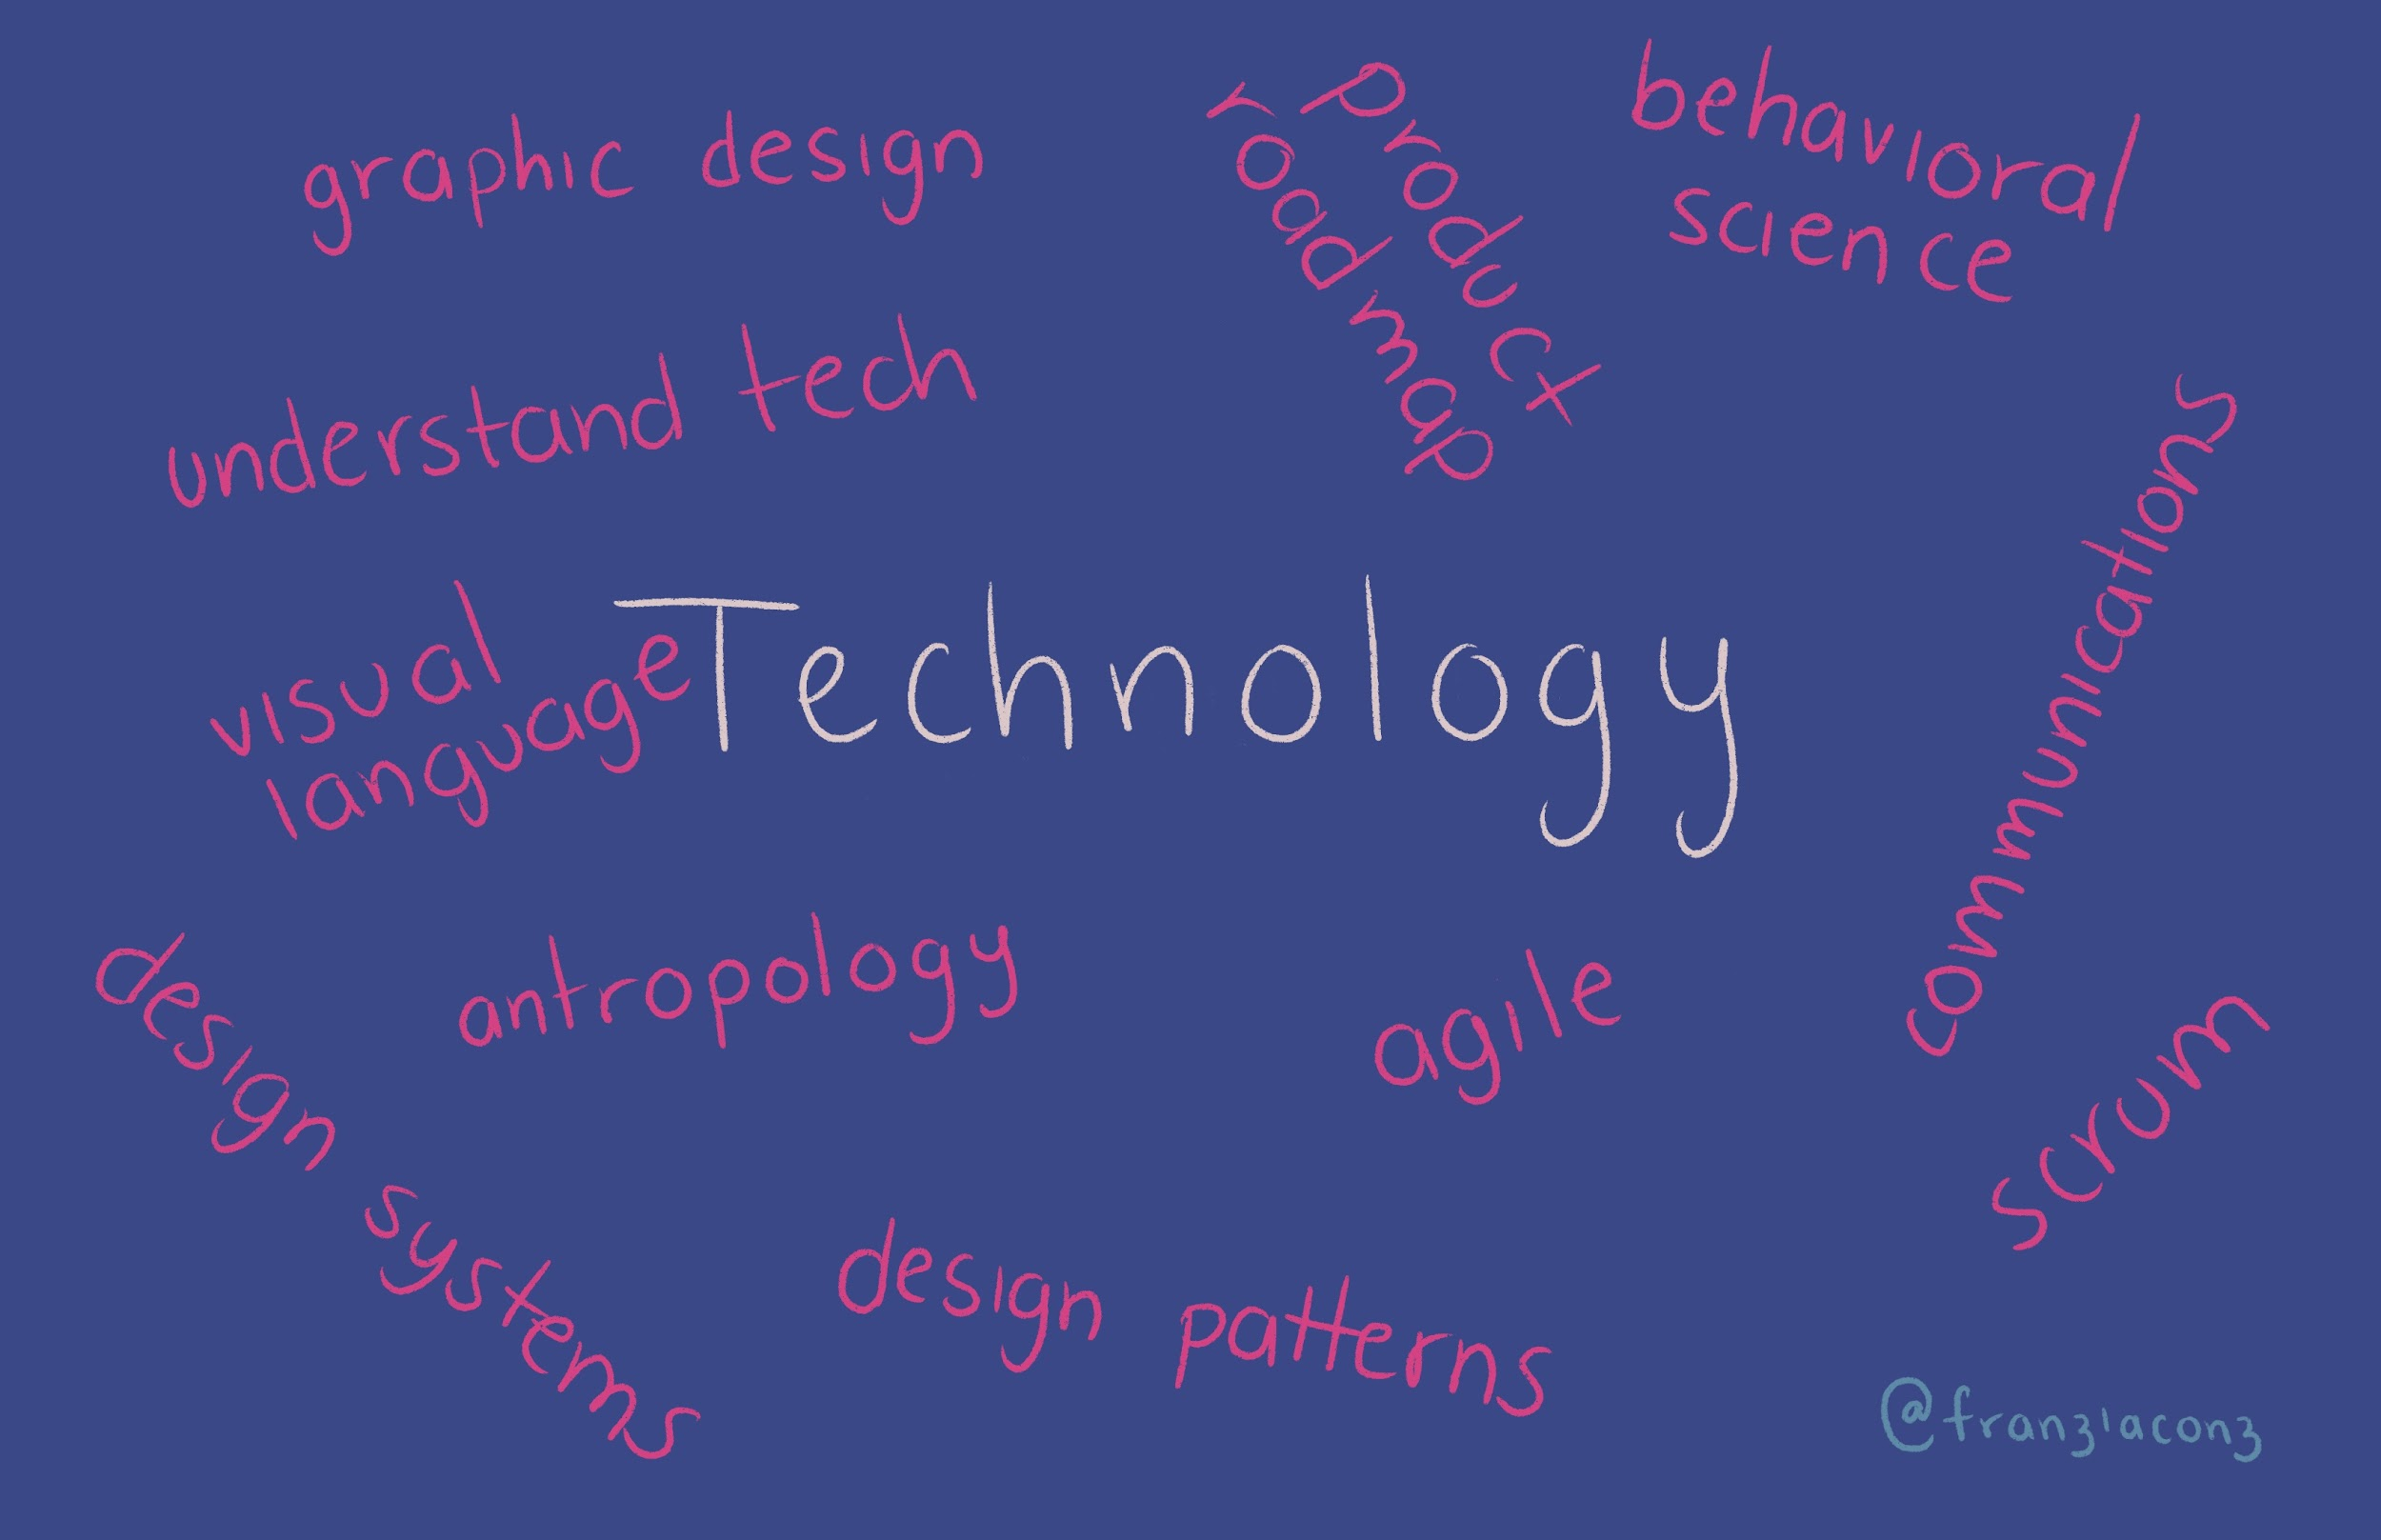 graphic design
product
roadmap
behavioral
science
understand tech
communications
visual
language
Technology
antropology
agile
design systems
scrum
design patterns
@franziaconz